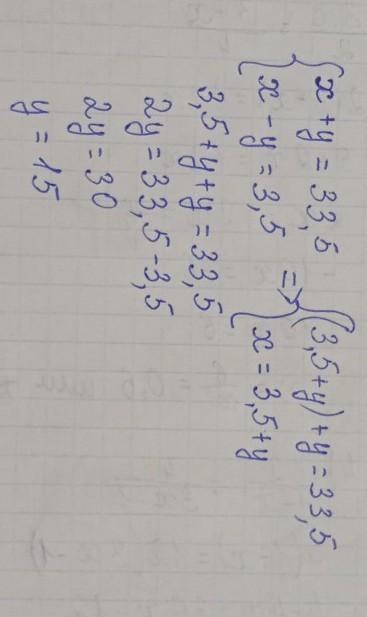 { x + y = 33,5 => { (3,5 + y) + y = 33,5
{ x - y = 3,5 { x = 3,5 + y
3,5 + y + y = 33,5
2y = 33,5 - 3,5
2y = 30
y = 15